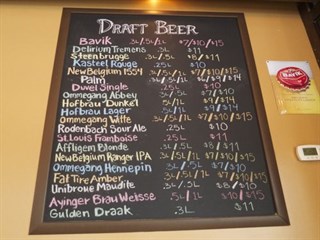 Draft Beer
Bavik .3L/.5L/1L $7/$10/$15
Delirium Tremens .3L $11
Steenbrugge .3L/.5L $8/$11
Kasteel Rouge .25L $10
New Belgium 1554 .3L/.5L/1L $7/$10/$15
Palm .3L/.5L/1L
Duvel Single .25L $10
Ommegang Abbey
Hofbrau Dunkel $9/$14
Hofbrau Lager .5L/1L $9/$14
Ommegang Witte .3L/.5L/1L $7/$10/$15
Rodenbach Sour Ale .25L $10
St. Louis Framboise .25L $11
Affligem Blonde .3L/.5L
New Belgium Ranger IPA .3L/.5L/1L $7/$10/$15
Ommegang Hennepin
Fat Tire Amber .3L/.5L/1L $7/$10/$15
Unibroue Maudite .3L/.5L $8/$10
Ayinger Brau Weisse .5L/1L $10/$15
Gulden Draak .3L $11
Bavik